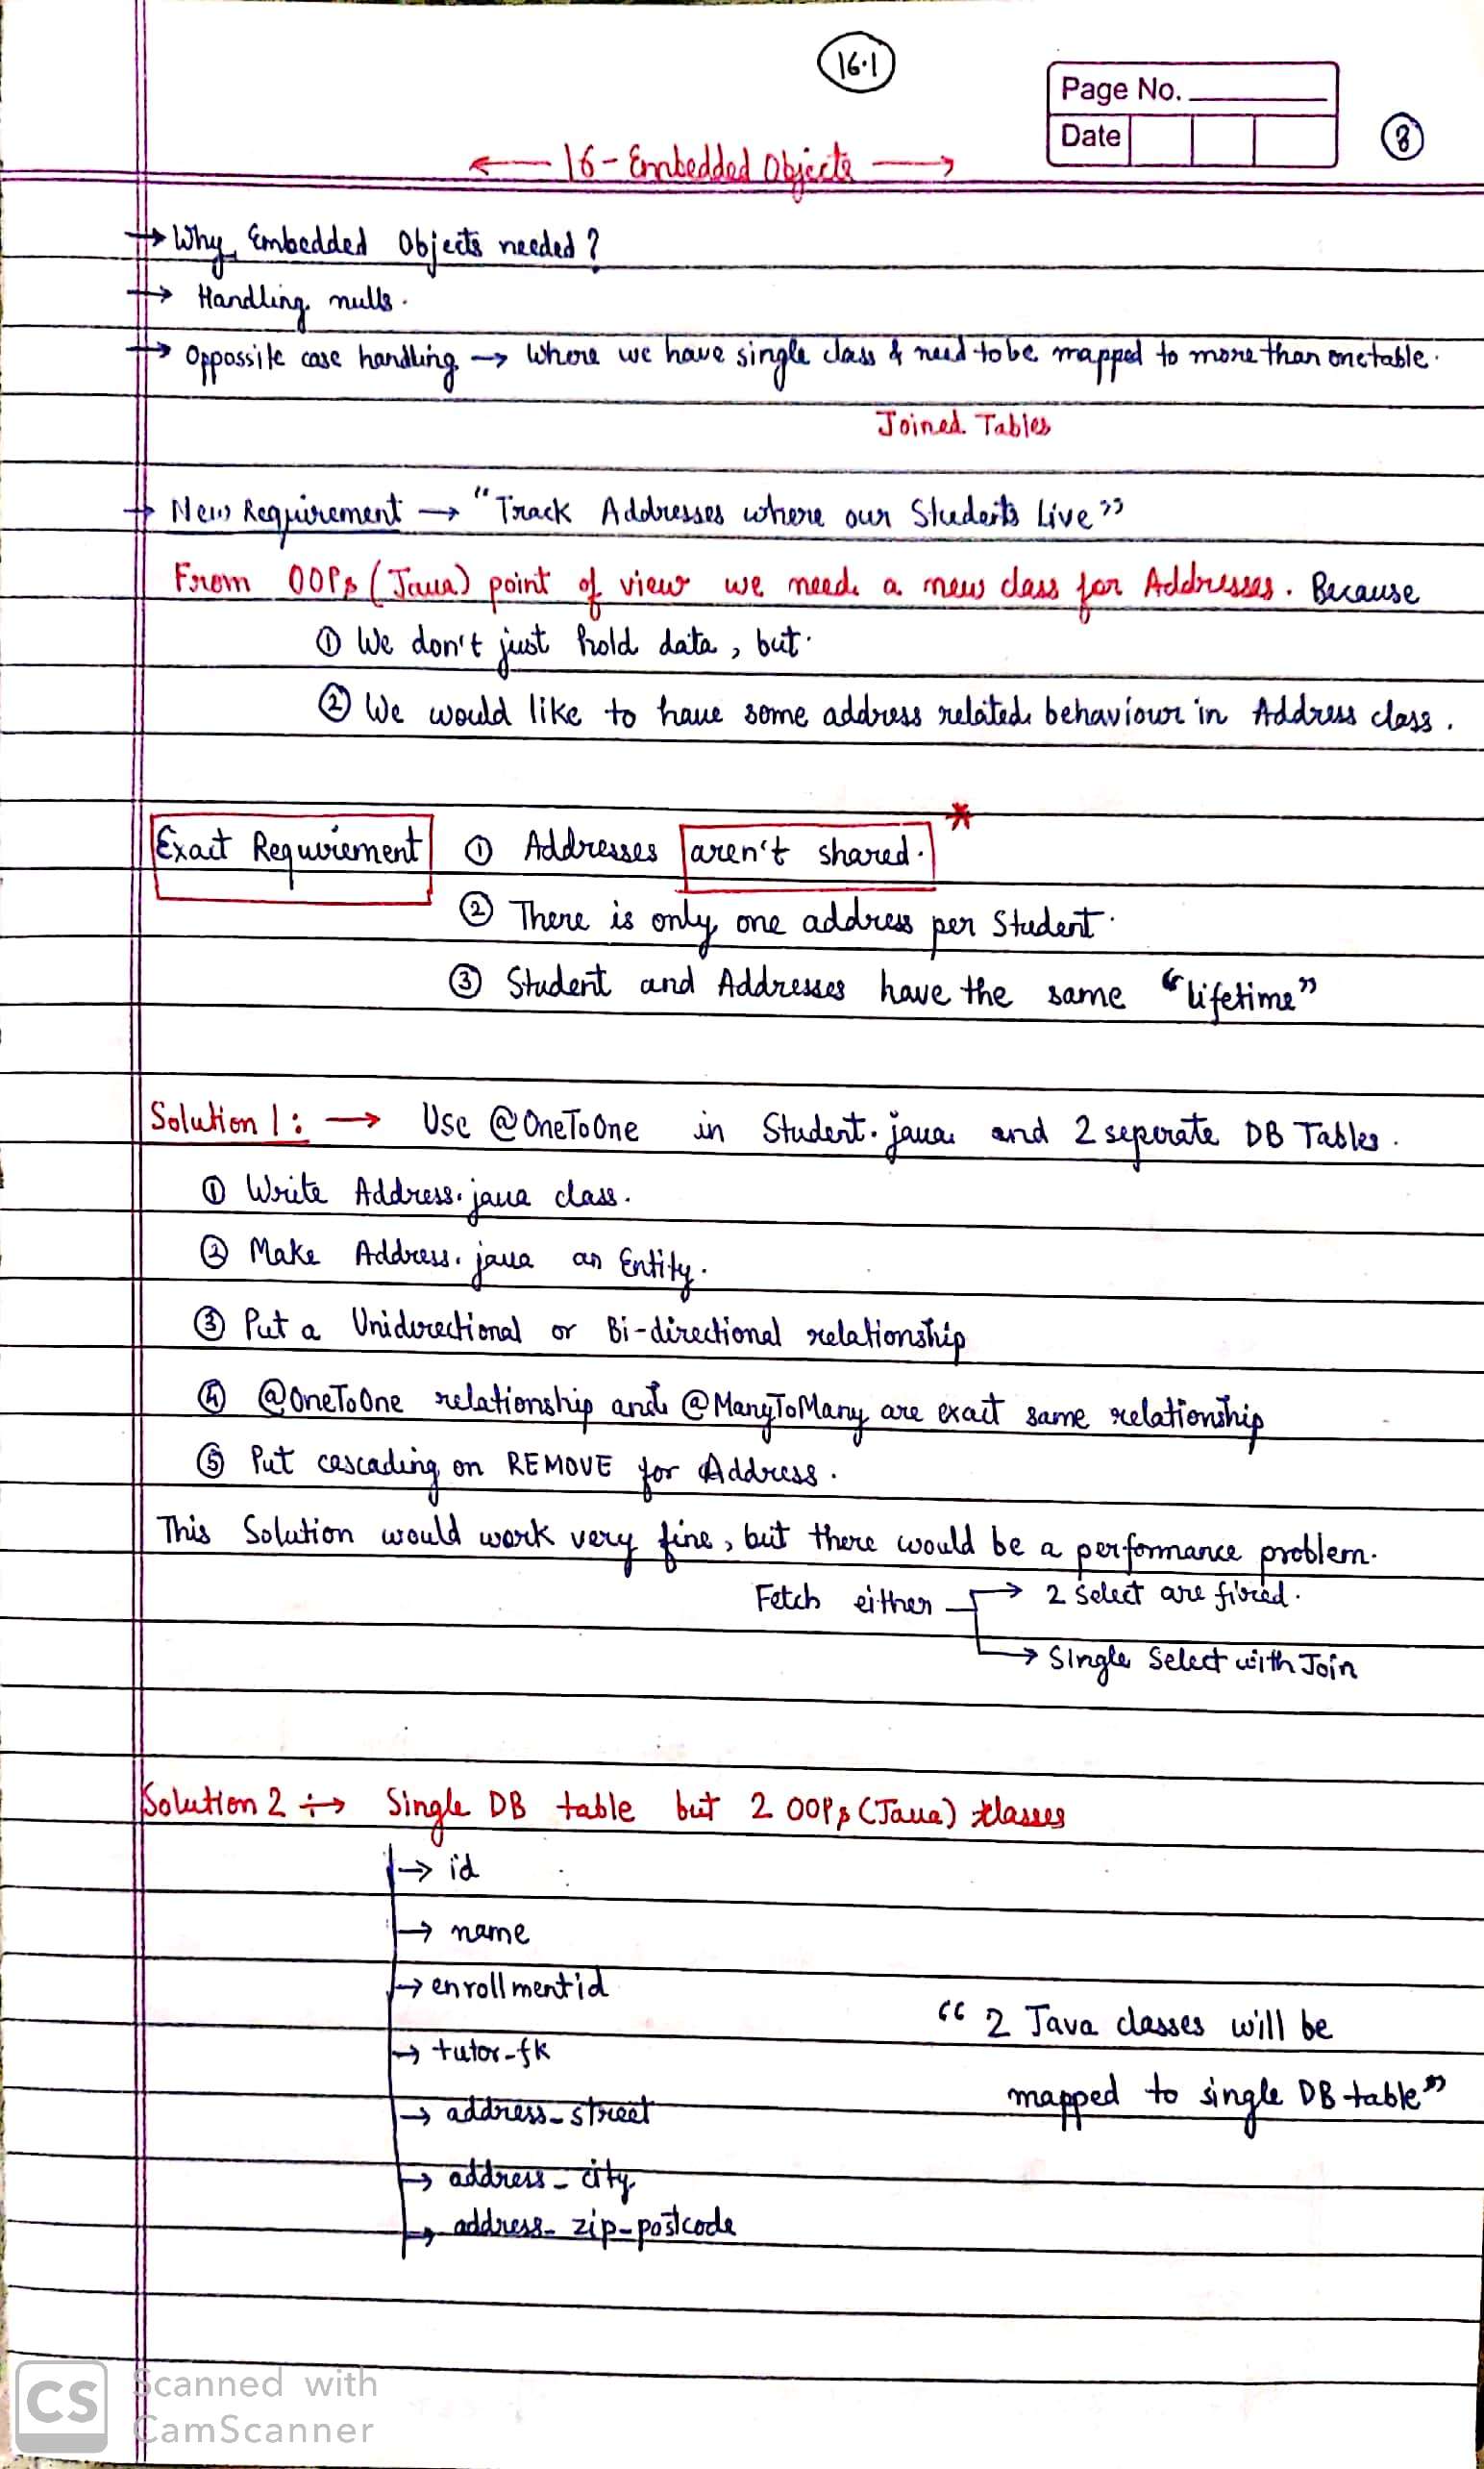 16.1
Page No.
Date
8
← 16 - Embedded Objects →
→ Why Embedded Objects needed?
→ Handling nulls.
→ Oppossite case handling → Where we have single class & need to be mapped to more than one table.
Joined Tables
→ New Requirement → "Track Addresses where our Students Live"
From OOPs (Java) point of view we need a new class for Addresses. Because
① We don't just hold data, but.
② We would like to have some address related behaviour in Address class.
Exact Requirement ① Addresses aren't shared. *
② There is only one address per Student.
③ Student and Addresses have the same "lifetime"
Solution 1 : → Use @OneToOne in Student.java and 2 seperate DB Tables.
① Write Address.java class.
② Make Address.java an Entity.
③ Put a Unidirectional or Bi-directional relationship
④ @OneToOne relationship and @ManyToMany are exact same relationship
⑤ Put cascading on REMOVE for Address.
This Solution would work very fine, but there would be a performance problem.
Fetch either → 2 Select are fired.
→ Single Select with Join
Solution 2 → Single DB table but 2 OOPs (Java) classes
→ id
→ name
→ enrollmentid
→ tutor-fk
"2 Java classes will be
mapped to single DB table"
→ address_street
→ address_city
→ address_zip-postcode
CS Scanned with
CamScanner